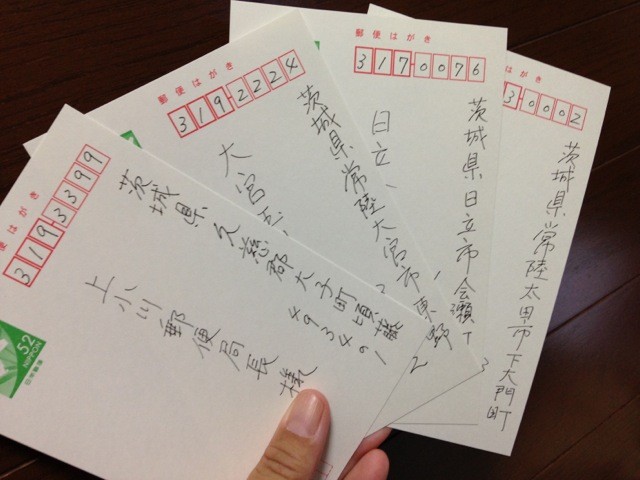 便はがき
3193399
茨城県久慈郡大子町頃藤
493491
上小川郵便局長様
52
NIPPON
日本郵便
郵便はがき
3192224
茨城県常陸大宮市東野
2
大宮
郵便はがき
3170076
茨城県日立市会瀬
日立
はがき
30002
茨城県常陸太田市下大門町